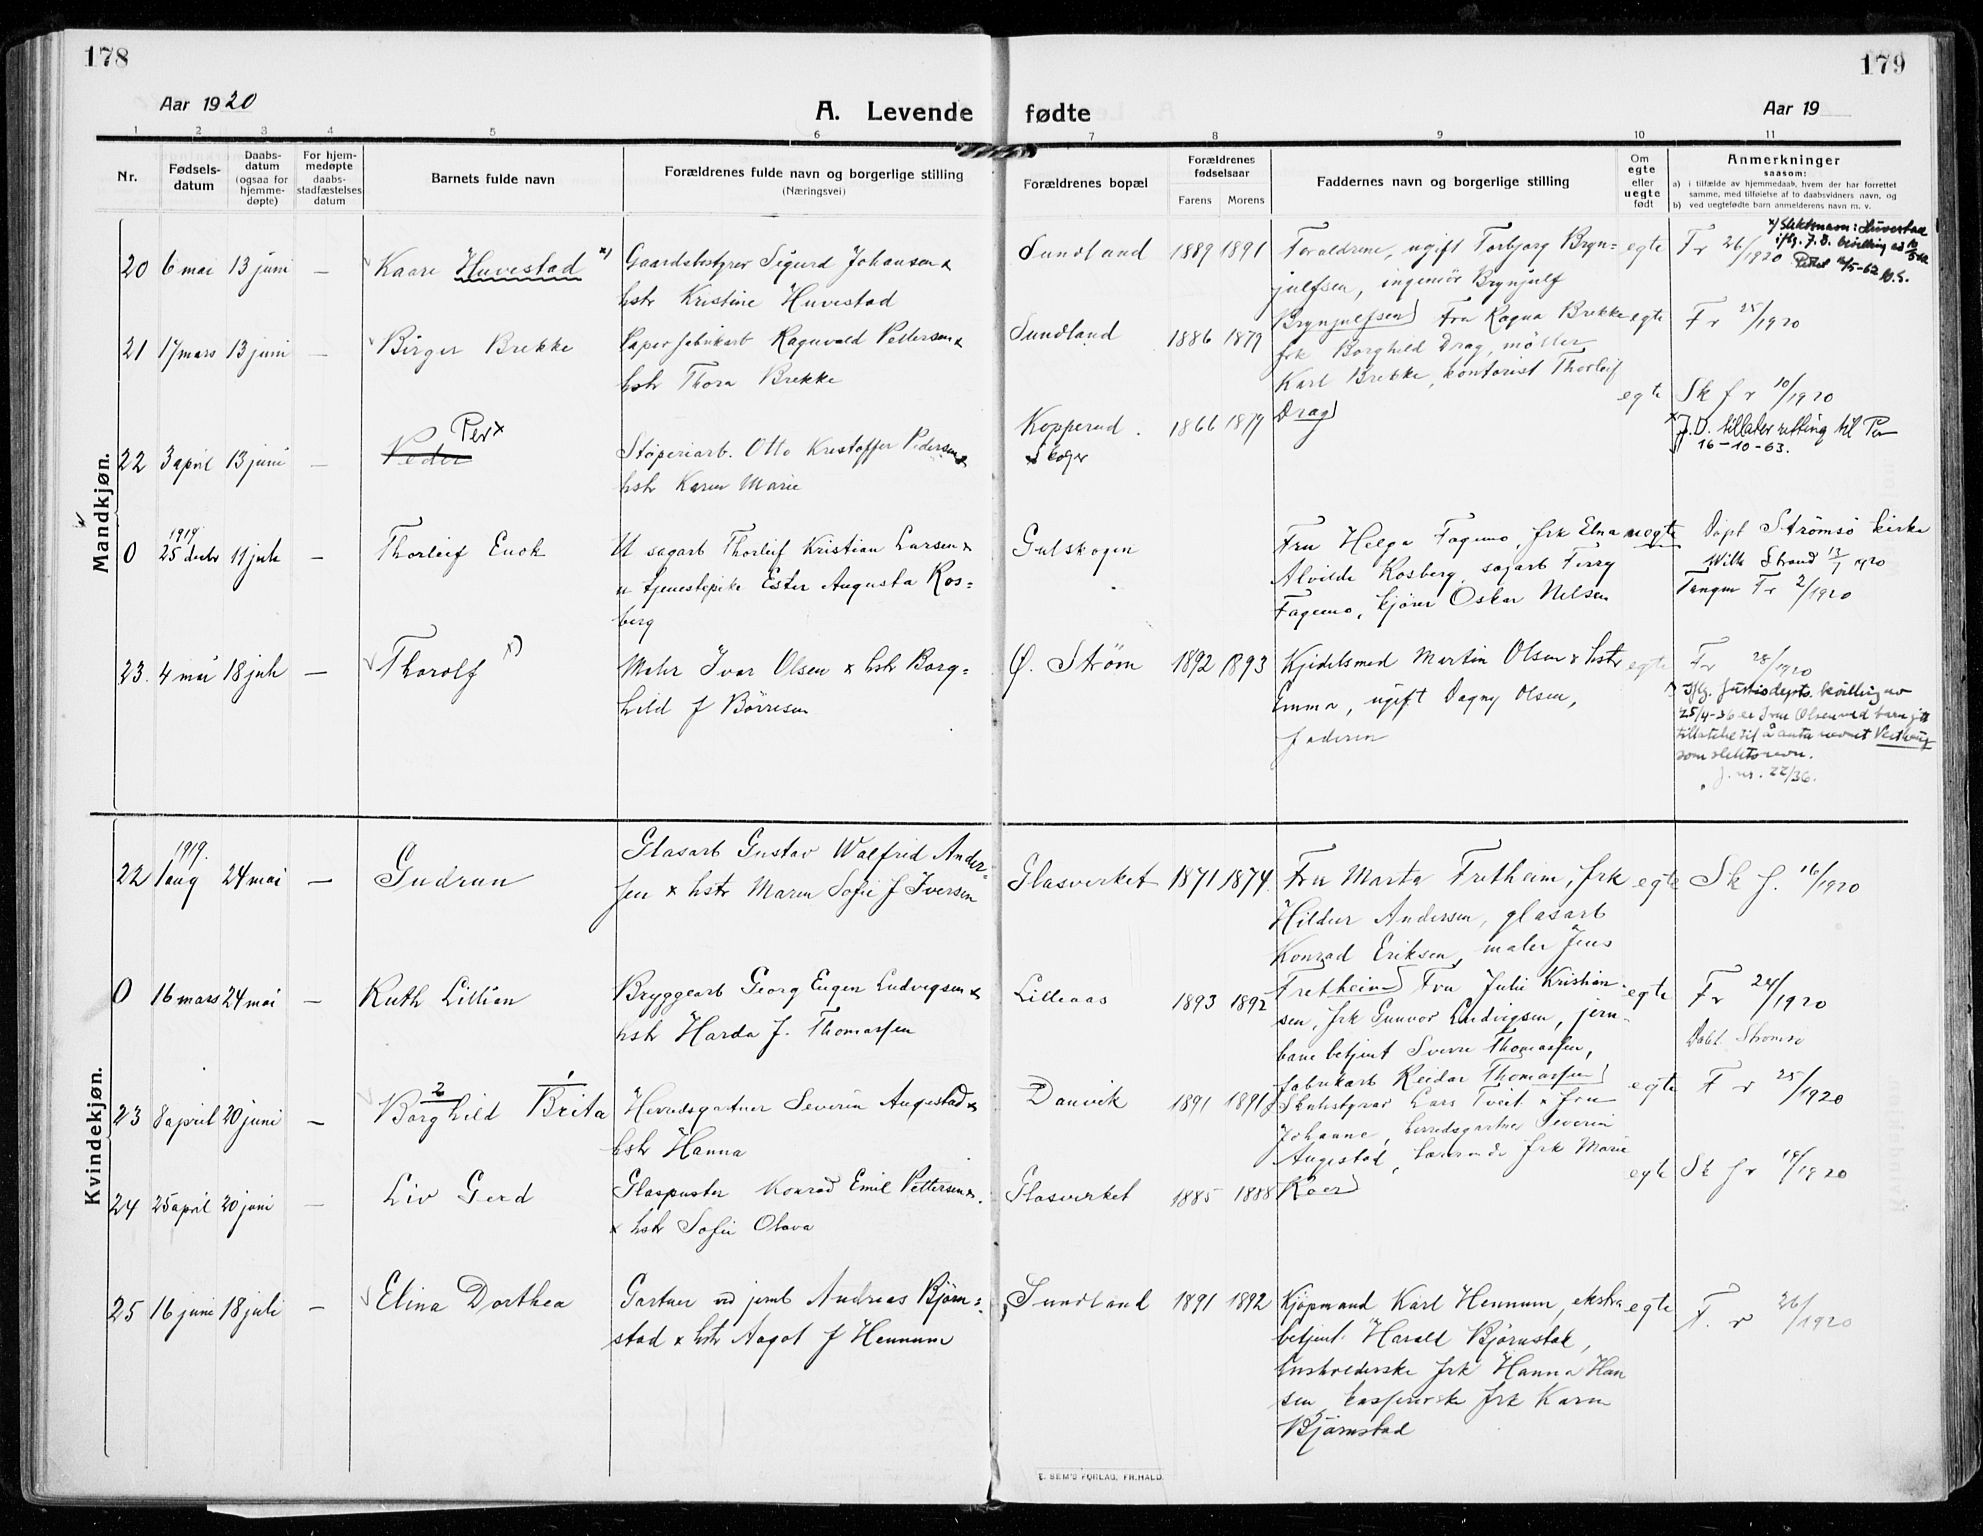 178
179
Aar 1920
A. Levende fødte
Aar 19
1 2 3 4 5 6 7 8 9 10 11
Nr.
Fødsels-
datum
Daabs-
datum
(ogsaa for
hjemme-
døpte)
For hjem-
medøpte
daabs-
stadfæstelses
datum
Barnets fulde navn
Forældrenes fulde navn og borgerlige stilling
(Næringsvei)
Forældrenes bopæl
Forældrenes
fødselsaar
Farens Morens
Faddernes navn og borgerlige stilling
Om
egte
eller
uegte
født
Anmerkninger
saasom:
a) i tilfælde av hjemmedaab, hvem der har forrettet
samme, med tilføielse af to daabsvidners navn, og
b) ved uegtefødte barn anmelderens navn m. v.
Mandkjøn.
20 6 mai 13 juni — Kaare Huvestad x)
Gaardsbestyrer Sigurd Johansen &
hstr Kristine Huvestad
Sundland 1889 1891
Foraldrene, ugift Torbjorg Bryn=
julfsen, ingeniör Brynjulf
Brynjulfsen
egte
Fr 26/1920
x) Slektsnavn: Huvestad
21 17 mars 13 juni — Birger Brekke
Papirfabrikarb Ragnvald Pettersen &
hstr Thora Brekke
Sundland 1886 1879
Fru Ragna Brekke
frk Borghild Drag, møller
Karl Brekke, kontorist Thorleif
Drag
egte
Fr 25/1920
22 3 april 13 juni — Peder Per x
Stöperiarb. Otto Kristoffer Pedersen &
hstr Karen Marie
Kopperud.
Skoger
1866 1879
egte
Sk f r 10/1920
x J.D. tillater retting til Per
16-10-63.
0 1919 25 decbr 11 juli — Thorleif Enok
U sagarb Thorleif Kristian Larsen &
u tjenestepike Ester Augusta Ros=
berg
Gulskogen
Fru Helga Fagemo, frk Elna
Alvilde Rosberg, sagarb Ferry
Fagemo, kjörer Oskar Nelsen
uegte
Döpt Strömsö kirke
Wilh Strand 13/7 1920
Tangen Fr 2/1920
23. 4 mai 18 juli — Thorolf x)
Maler Ivar Olsen & hstr Borg=
hild f Börresen
Ø. Ström 1892 1893
Kjedelsmed Martin Olsen & hstr
Emma, ugift Dagny Olsen,
faderen
egte
Fr 28/1920
x) Iflg. Justisdepts. bevilling av
25/4-36 er Ivar Olsen ved barn gitt
tillatelse til å anta navnet
som slektsnavn.
J. nr. 22/36.
Kvindekjøn.
22 1919. 1 aug 24 mai — Gudrun
Glasarb Gustav Walfrid Ander-
sen & hstr Maren Sofie f Iversen
Glasverket 1871 1874.
Fru Marta Fretheim, frk
Hildur Andersen, glasarb
Konrad Eriksen, maler Jens
Fretheim
egte
Sk f. 16/1920
0 16 mars 24 mai — Ruth Lillian
Bryggearb Georg Eugen Ludvigsen &
hstr Harda f. Thomassen
Lilleaas 1893 1892
Fru Julie Kristian-
sen, frk Gunvor Ludvigsen, jern-
banebetjent Sverre Thomassen,
fabrikarb Reidar Thomassen
egte
Fr 24/1920
Döbt Strömsö
23 8 april 20 juni — 2 Borghild 1 Brita
Herredsgartner Severin Augestad &
hstr Hanna
Danvik 1891 1891
Skolebestyrer Lars Tveit & fru
Johanne, herredsgartner Severin
Augestad, lærerinde frk Marie
Roer
egte
F r 25/1920
24 25 april 20 juni — Liv Gerd
Glaspuster Konrad Emil Pettersen &.
& hstr Sofie Olava
Glasverket 1885 1888
egte
Sk f r 19/1920
25 16 juni 18 juli — Elina Dorthea
Gartner ved jernb Andreas Björn=
stad & hstr Aagot f Hennum
Sundland 1891 1892
Kjöpmand Karl Hennum, ekstra
betjent Harald Björnstad,
husholderske frk Hanna Han
sen, kassererske frk Karen
Björnstad
egte
F. r 26/1920
E. SEM'S FORLAG, FR.HALD.